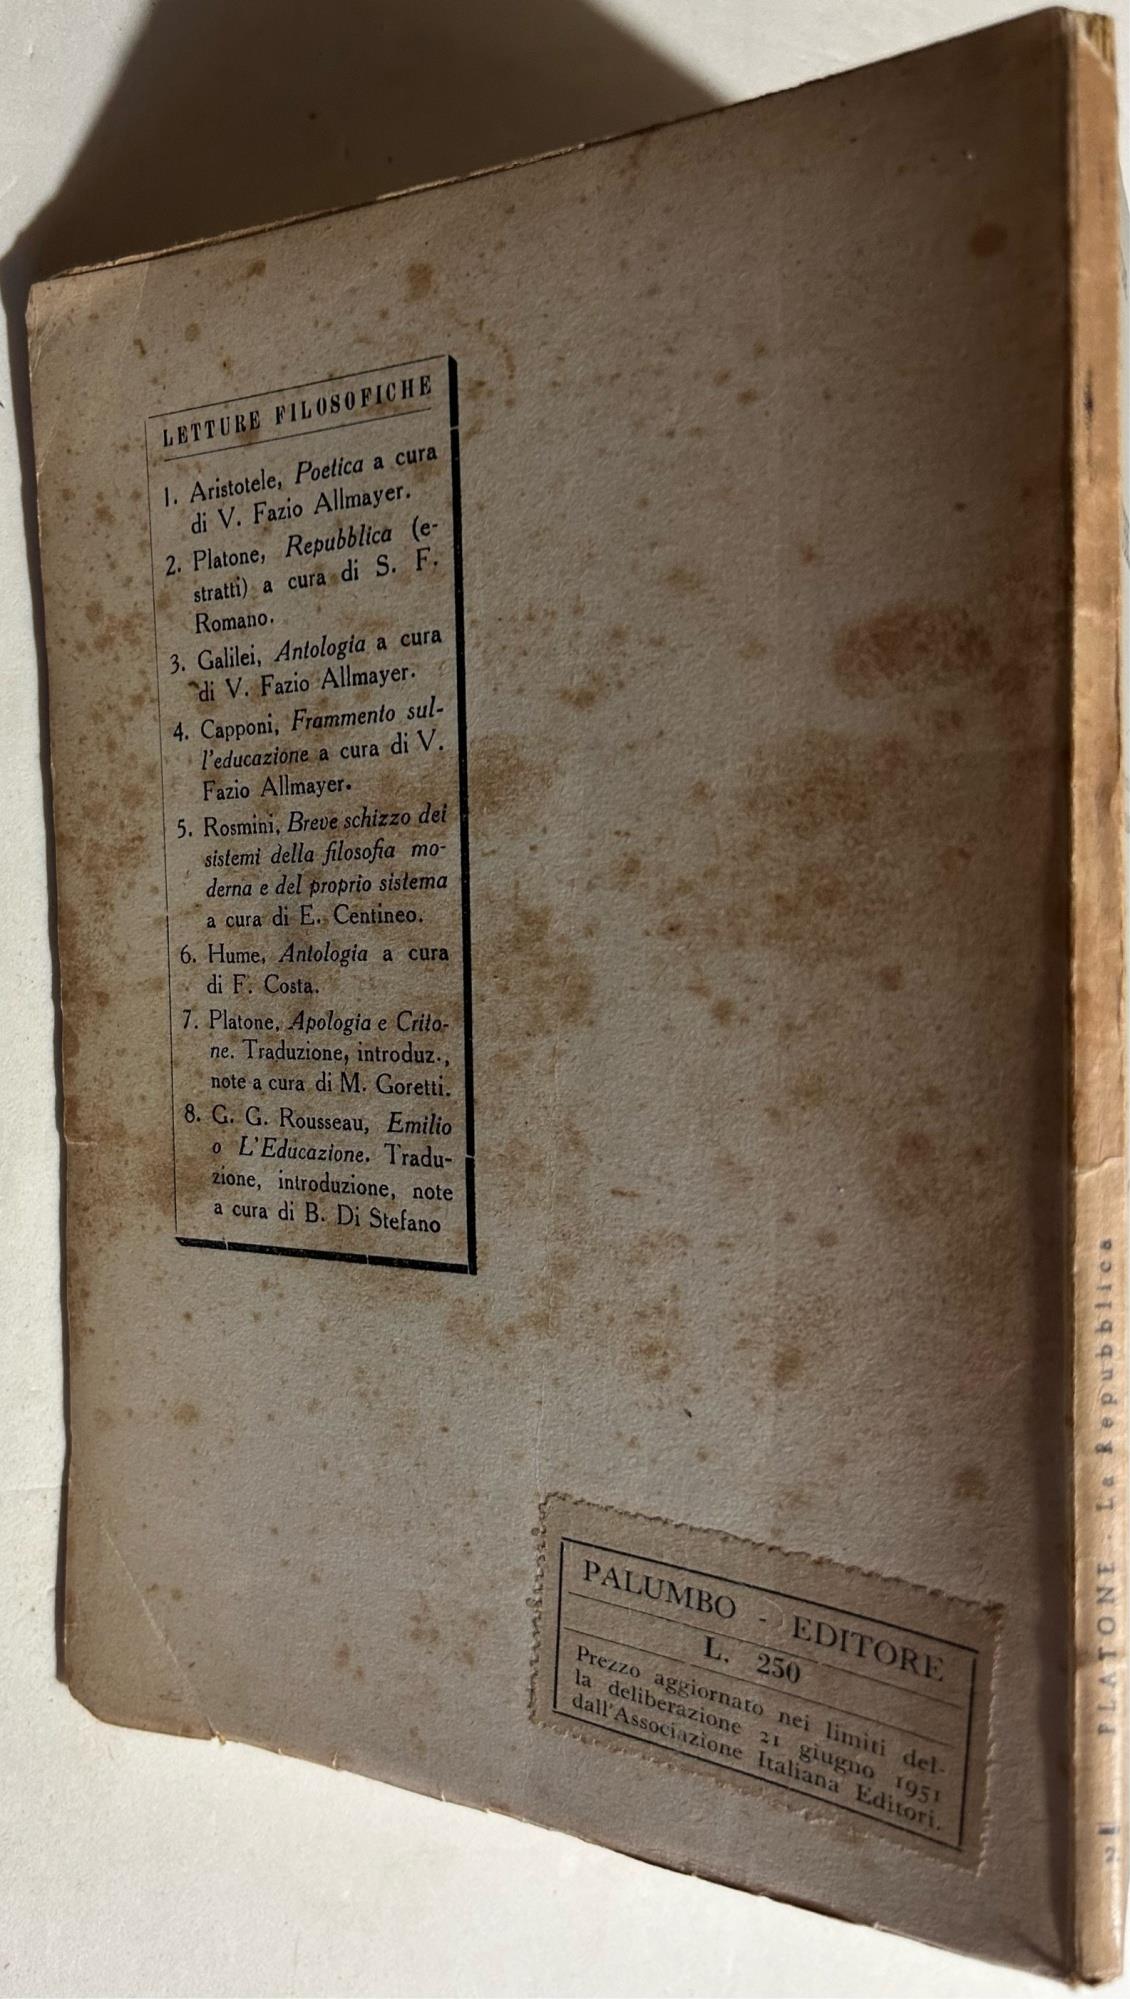 LETTURE FILOSOFICHE
1. Aristotele, Poetica a cura
di V. Fazio Allmayer.
2. Platone, Repubblica (e-
stratti) a cura di S. F.
Romano.
3. Galilei, Antologia a cura
di V. Fazio Allmayer.
4. Capponi, Frammento sul-
l'educazione a cura di V.
Fazio Allmayer.
5. Rosmini, Breve schizzo dei
sistemi della filosofia mo-
derna e del proprio sistema
a cura di E. Centineo.
6. Hume, Antologia a cura
di F. Costa.
7. Platone, Apologia e Crito-
ne. Traduzione, introduz.,
note a cura di M. Goretti.
8. G. G. Rousseau, Emilio
o L'Educazione. Tradu-
zione, introduzione, note
a cura di B. Di Stefano
PALUMBO - EDITORE
L. 250
Prezzo aggiornato nei limiti del-
la deliberazione 21 giugno 1951
dall'Associazione Italiana Editori.
2 PLATONE - La Repubblica